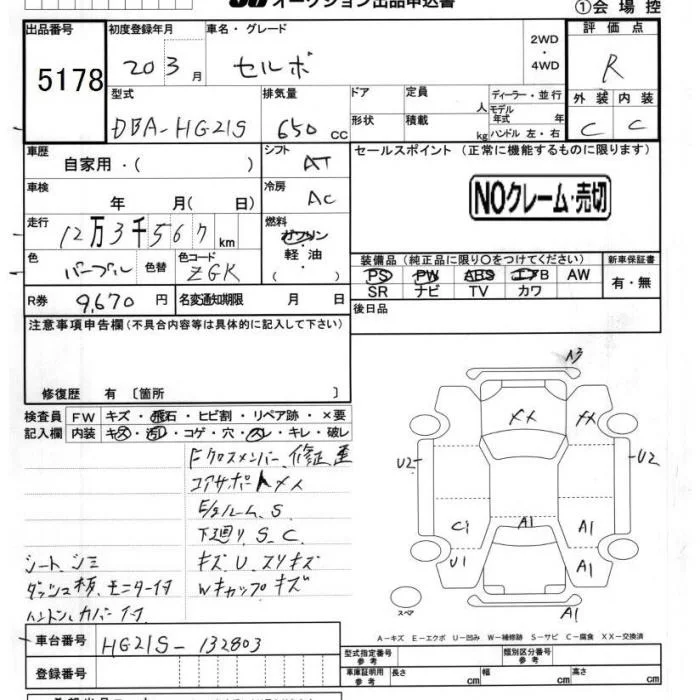 オークション出品申込書
①会場控
出品番号
5178
初度登録年月
20 3月
車名・グレード
セルボ
2WD
・
4WD
評価点
R
型式
DBA-HG21S
排気量
650 cc
ドア
形状
定員
人
積載
kg
ディーラー・並行
モデル
年式 年
ハンドル 左・右
外装 内装
C C
車歴
自家用・( )
シフト
AT
セールスポイント (正常に機能するものに限ります)
NOクレーム・売切
車検
年 月( 日)
冷房
AC
走行
12万3千567 km
燃料
ガソリン
・
軽・油
( )
色
パープル
色替
色コード
ZGK
装備品 (純正品に限り○をつけてください)
新車保証書
PS PW ABS エアB AW
SR ナビ TV カワ
有・無
R券
9,670 円
名変通知期限 月 日
後日品
注意事項申告欄 (不具合内容等は具体的に記入して下さい)
修復歴 有 〔箇所 〕
検査員
記入欄
FW キズ・飛石・ヒビ割・リペア跡・×要
内装 キズ・汚レ・コゲ・穴・スレ・キレ・破レ
Fクロスメンバー、修正、歪
コアサポートメメ
E/gルーム、S
下廻り、S、C
キズ U、スリキズ
Wキャップキズ
シート、シミ
ダッシュ板、モニター付
ハンドルカバー付
A3
XX
XX
U2
U2
C1
A1
A1
U1
A1
A1
スペア
A-キズ E-エクボ U-凹み W-補修跡 S-サビ C-腐食 XX-交換済
車台番号
HG21S-132803
登録番号
型式指定番号
参考
類別区分番号
参考
車庫証明用
参考
長さ cm
幅 cm
高さ cm